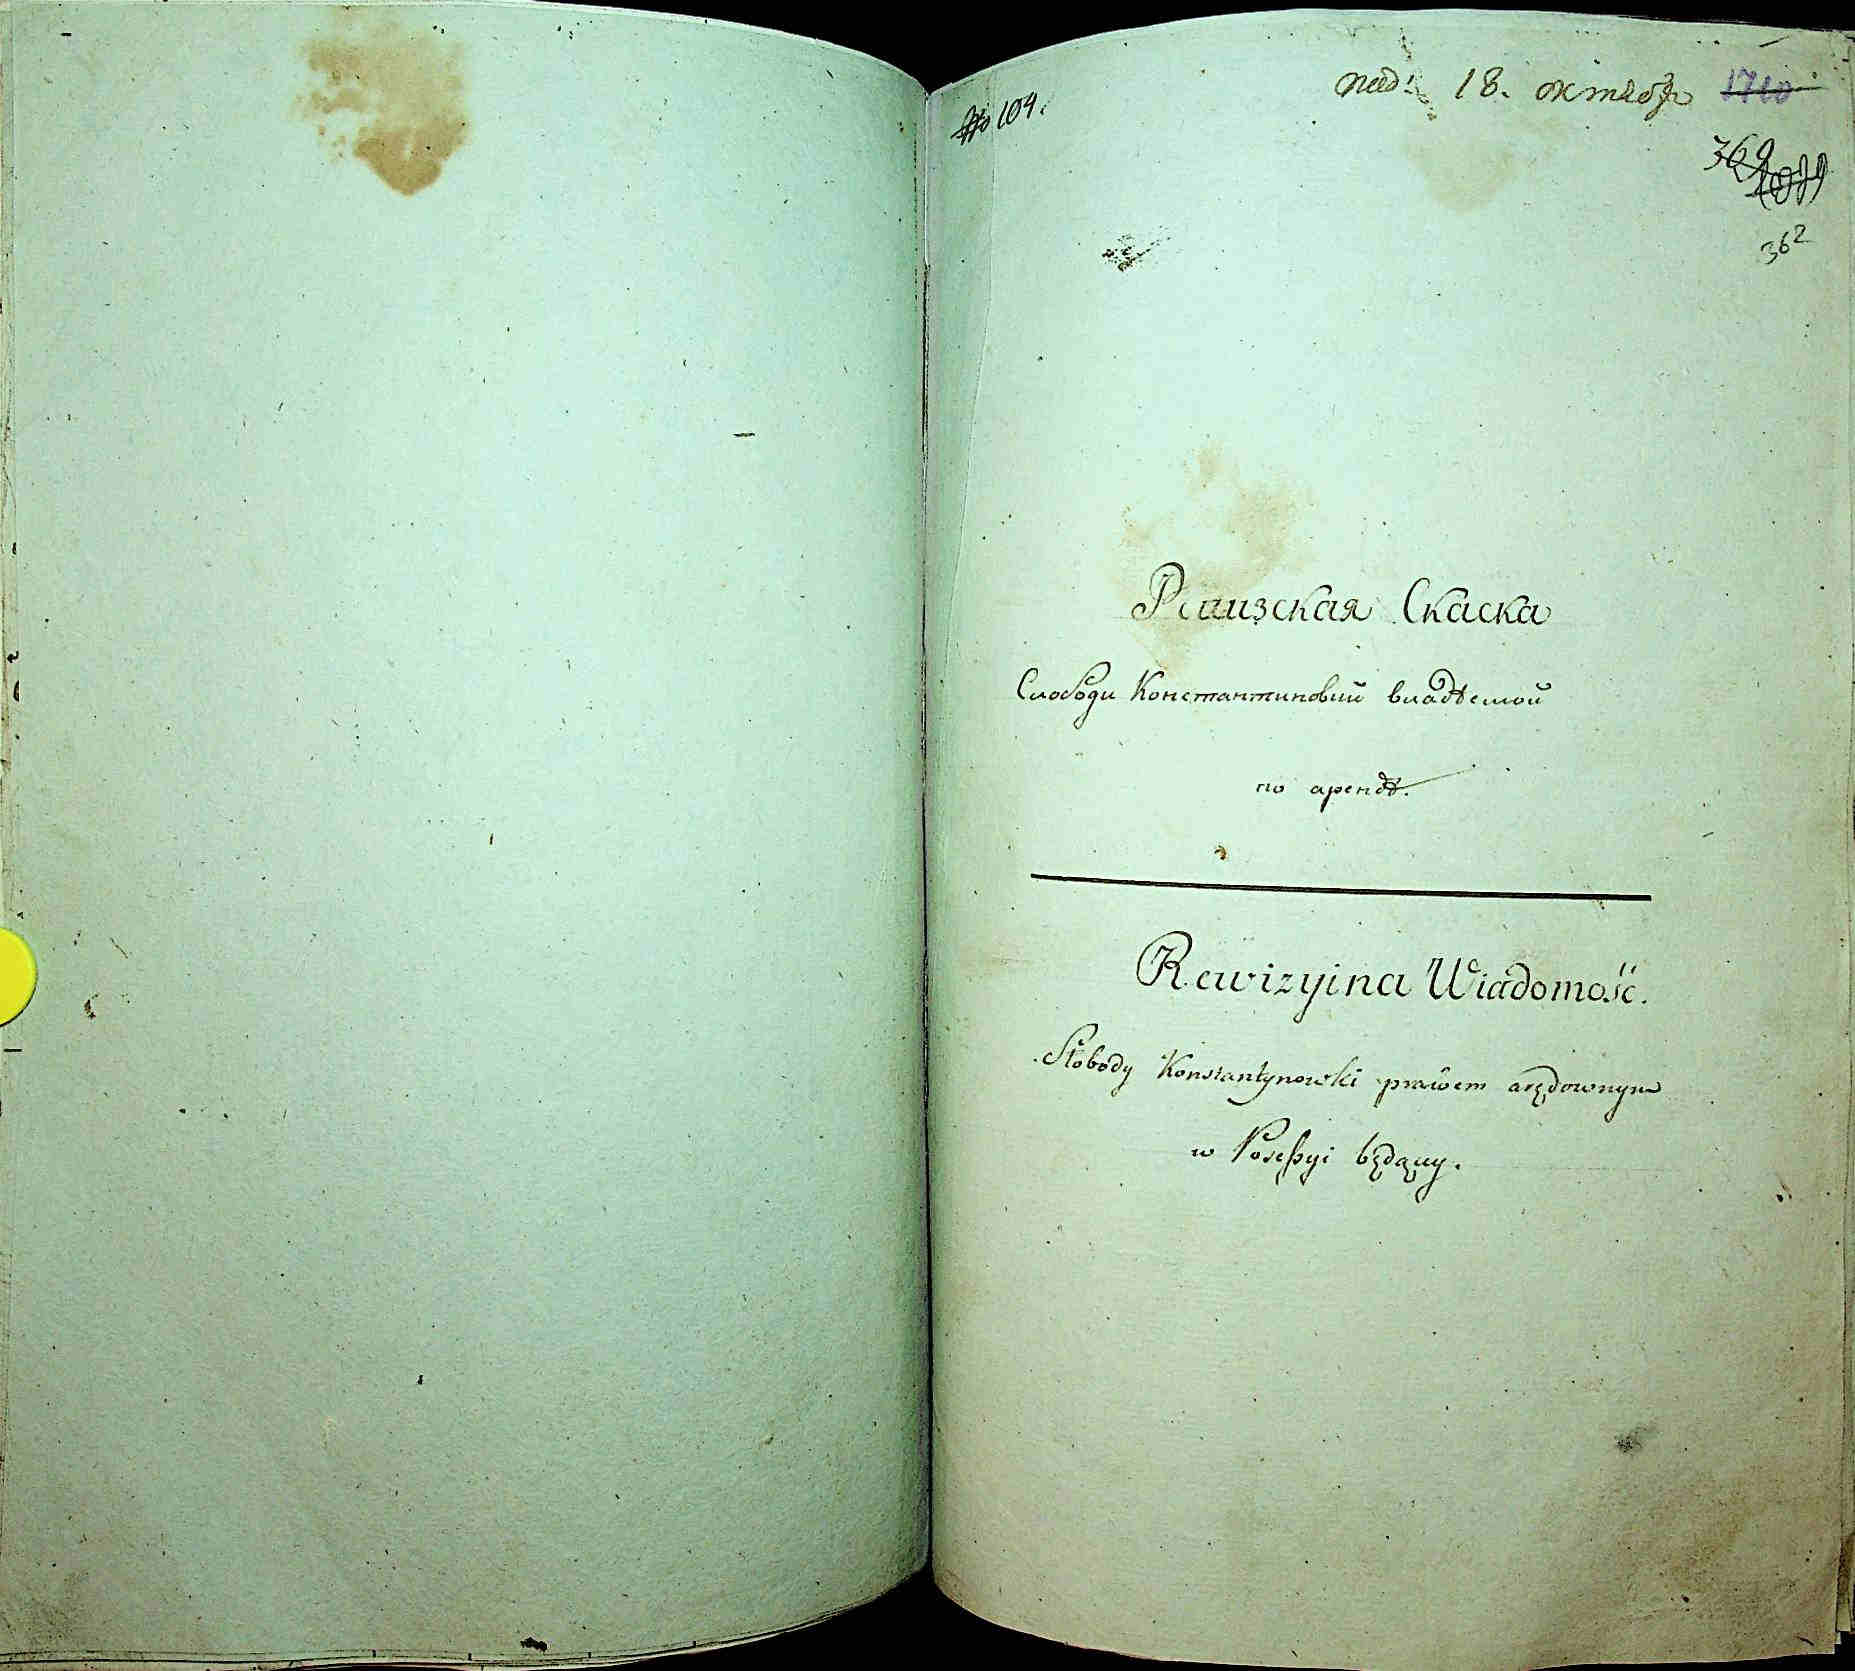 № 104.
под: 18. октября 1710
369
362
Ревизская Скаска
Слободи Константиновкй владѣемой
по арендѣ.
Rewizyina Wiadomość.
Słobody Konstantynowki prawem arędownym
w Posessyi będącey.